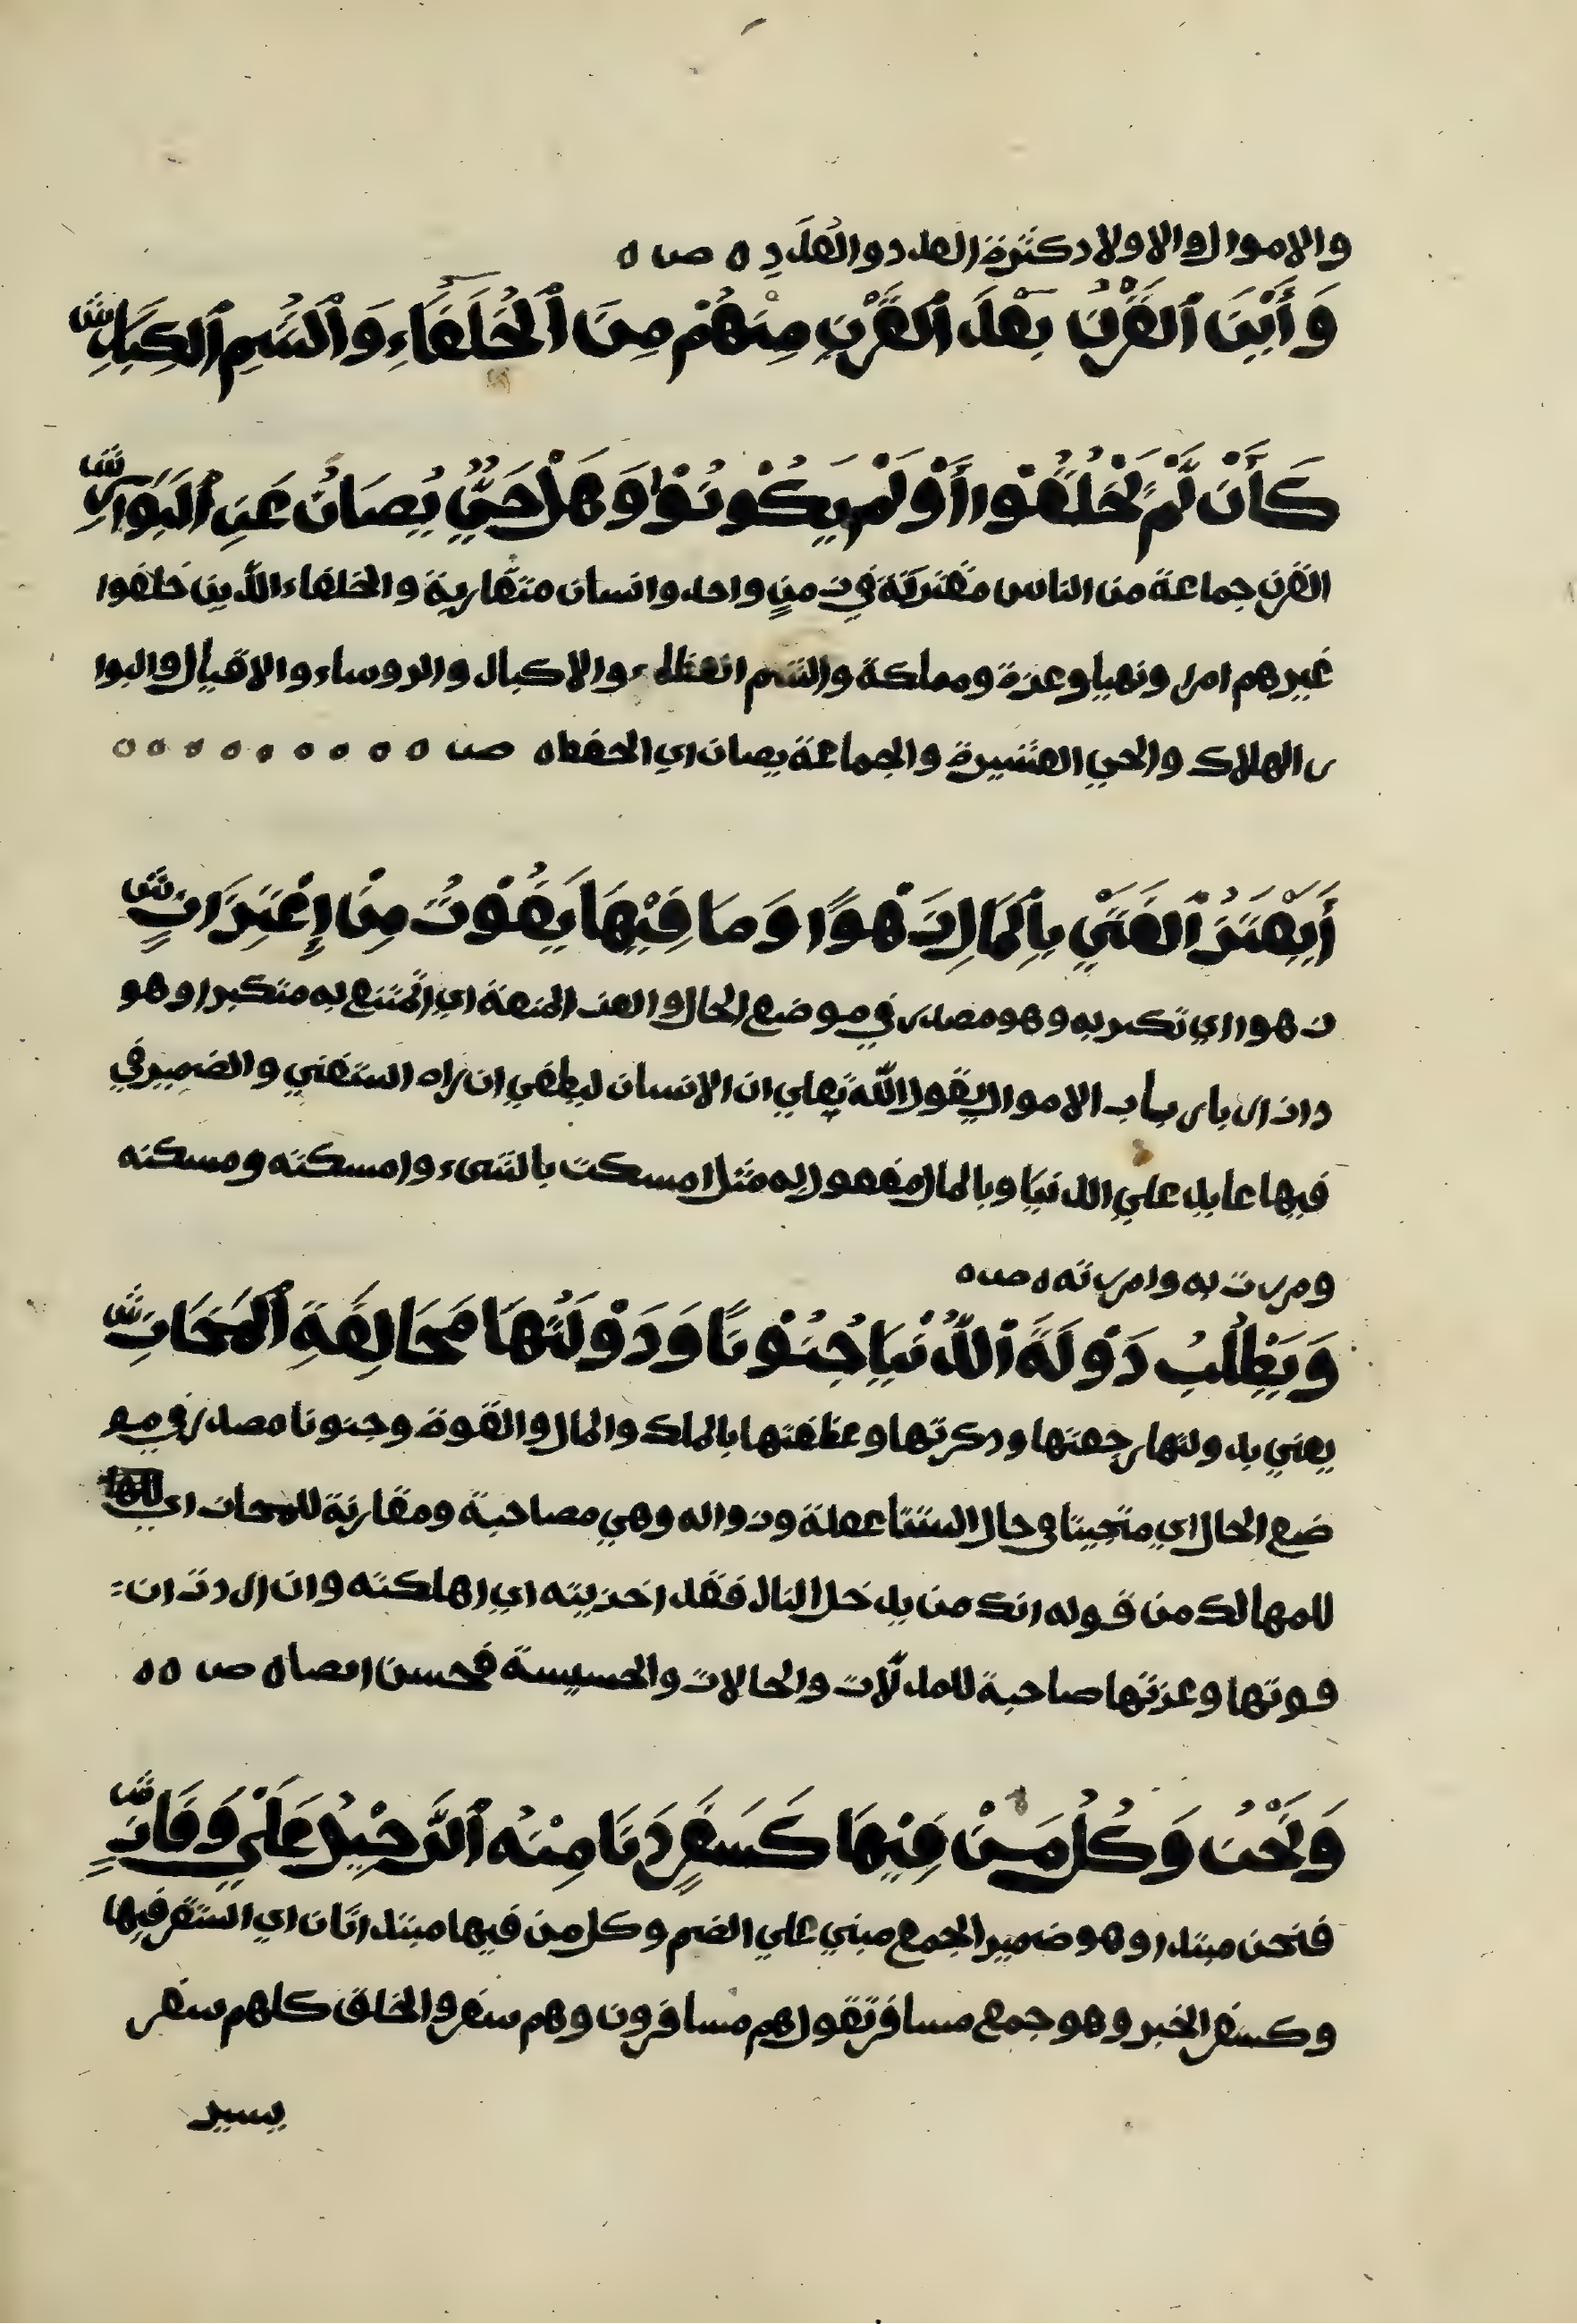 والاموال والاولاد كثرة العدد والعُدَدِ ه ص ه
وَأَيْنَ ٱلْقَرْنُ بَعْدَ ٱلْقَرْنِ مِنْهُمْ مِنَ ٱلْخُلَفَاءِ وَٱلشُّمِ ٱلْكِبَارِ ش
كَأَنْ لَّمْ يُخْلَقُوْا أَوْ لَمْ يَكُوْنُوْا وَهَلْ حَيٌّ يُصَانُ عَنِ ٱلْبَوَارِ ش
القرن جماعة من الناس مقترنة في زمنٍ واحد وانسان متقاربة والخلفاء الذين خلفوا
غيرهم امرا ونهيا وعزة ومملكة والشم العظماء والاكبال والروساء والاقيال والبوا
ر الهلاك والحي العشيرة والجماعة يصان اي الحفظ ه ص ه ه ه ه ه ه ه ه ه
أَيَغْتَرُ ٱلْفَتَيْ بِٱلْمَالِ زَهْوًا وَمَا فِيْهَا يَفُوْتُ مِنْ إِعْتِرَازِ ش
زهوا اي تكبر به وهو مصدر في موضع الحال والعز المنعة اي المتنع به متكبرا وهو
دان ارباب الاموال يقول اللّه تعلي ان الانسان ليطغي ان راه استغني والضمير في
فيها عايد علي الدنيا وبالمال مفعول به مثل امسكت بالشيء وامسكته ومسكته
ومررت به وامررته ه ص ه
وَيَطْلُبُ دَوْلَةَ ٱلدُّنْيَا جُنُوْنًا وَدَوْلَتُهَا مَحَالِفَةِ ٱلْمَخَازِ ش
يعني بدولتها رجعتها وكرتها وعظفتها بالملك والمال والقوة وجنونا مصدر في مو
ضع الحال اي متجننا في حال عقلة وزواله وهي مصاحبة ومقارنة للمخاز اي
للمهالك من قوله انك من يدخل النار فقد اخزيته اي اهلكته وان اردت ان =
قوتها وعزتها صاحبة للمذلات والحالات والخسيسة فحسن ايضا ه ص ه ه
وَنَحْنُ وَكُلُ مَنْ فِيْهَا كَسَفَرٍ دَنَا مِنْهُ ٱلرَّحِيْلُ عَلَيْ وَفَازِ ش
فنحن مبتدا وهو ضمير الجمع مبني علي الضم وكل من فيها مبتدا ثان اي استقر فيها
وكسفر الخبر وهو جمع مسافر تقول هم مسافرون وهم سفر والخلق كلهم سفر
يسير